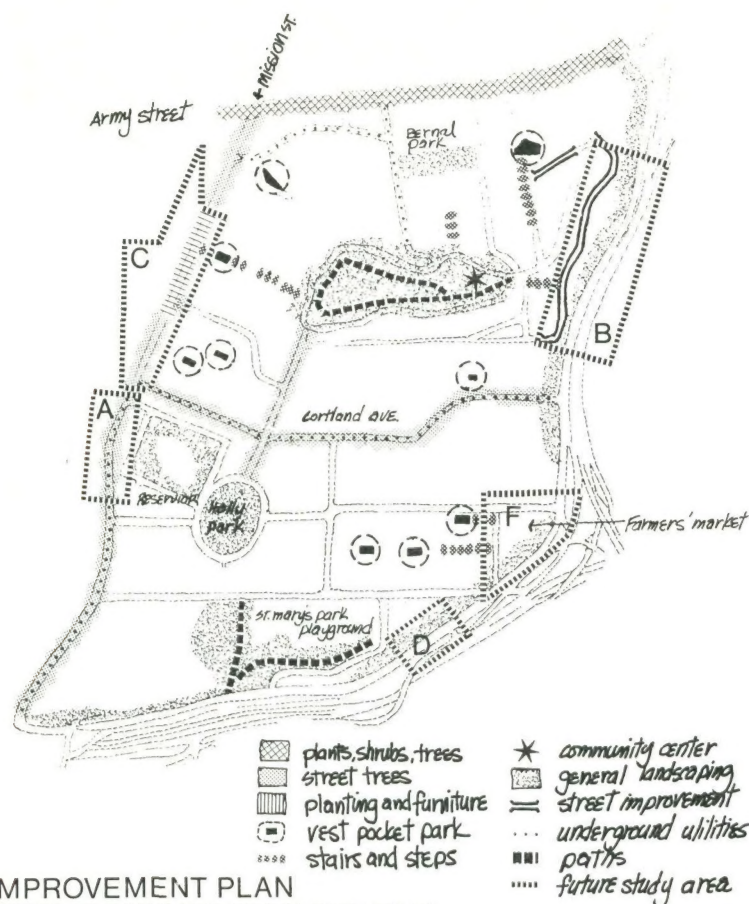 ←MISSION ST.
Army street
Bernal
park
C
B
A
Cortland AVE.
Reservoir
Holly
park
F
Farmers' market
St. Marys park
playground
D
plants, shrubs, trees
street trees
planting and furniture
vest pocket park
stairs and steps
community center
general landscaping
street improvement
underground utilities
paths
future study area
MPROVEMENT PLAN